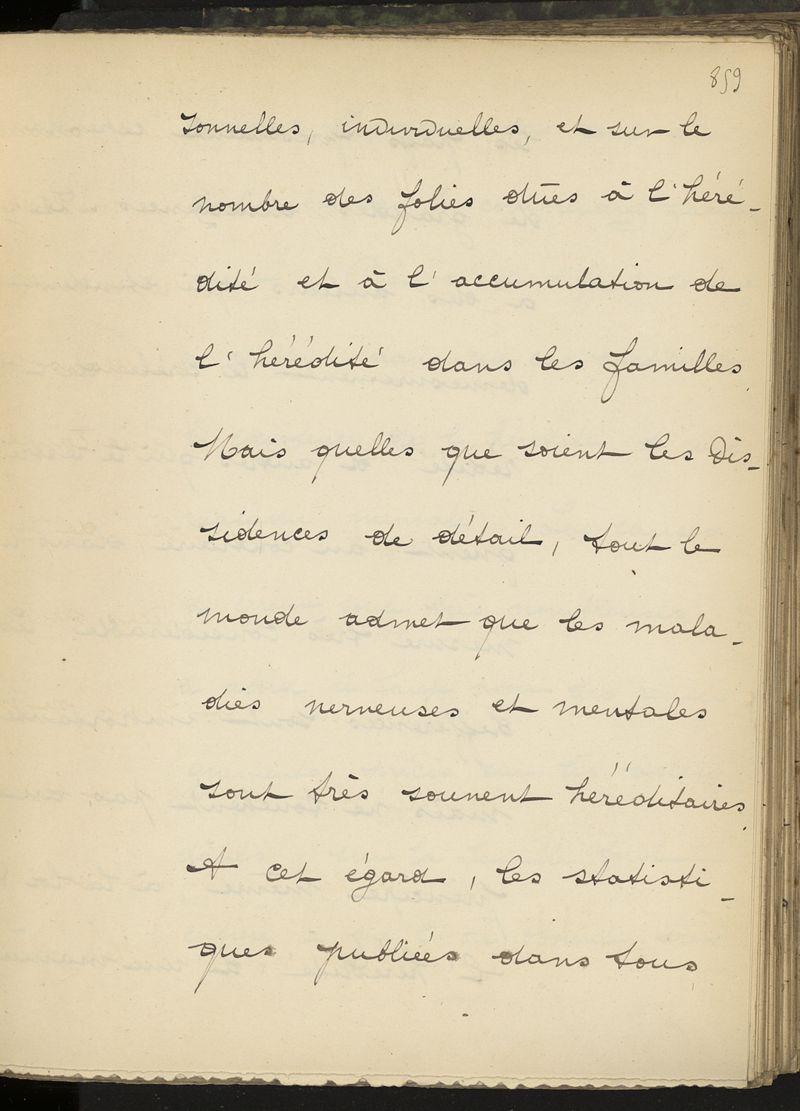 859
sonnelles, individuelles, et sur le
nombre des folies dûes à l'héré-
dité et à l'accumulation de
l'hérédité dans les familles.
Mais quelles que soient les dis-
sidences de détail, tout le
monde admet que les mala-
dies nerveuses et mentales
sont très souvent héréditaires.
A cet égard, les statisti-
ques publiées dans tous